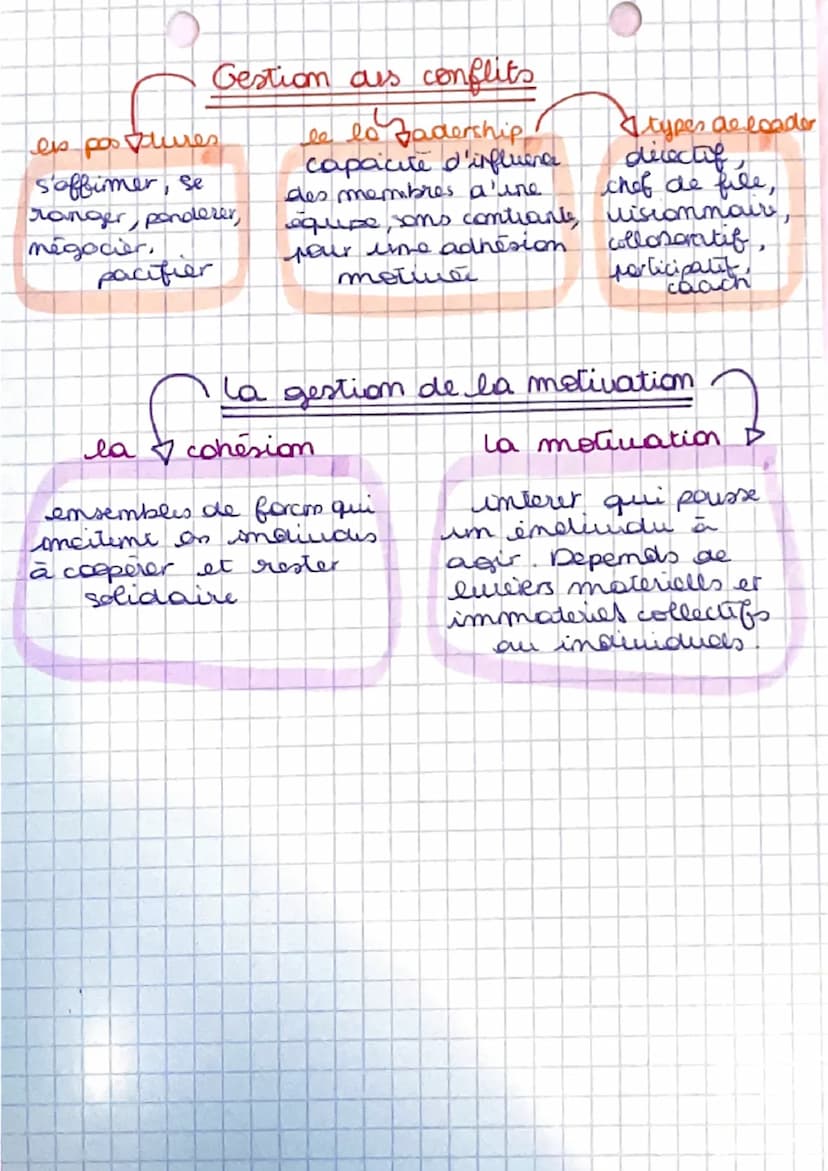 Gestion des conflits
les postures
s'affirmer, se
ranger, ponderer,
négocier,
pacifier
le leadership
capacité d'influence
des membres d'une
équipe, sans contrainte,
pour une adhésion
motivée
types de leader
directif,
chef de file,
visionnaire,
collaboratif,
participatif,
coach
La gestion de la motivation
la cohésion
ensembles de forces qui
incitent les individus
à coopérer et rester
solidaire
La motivation
interet qui pousse
un individu à
agir. Depends de
leviers materielles et
immateriels collectifs
ou individuels.